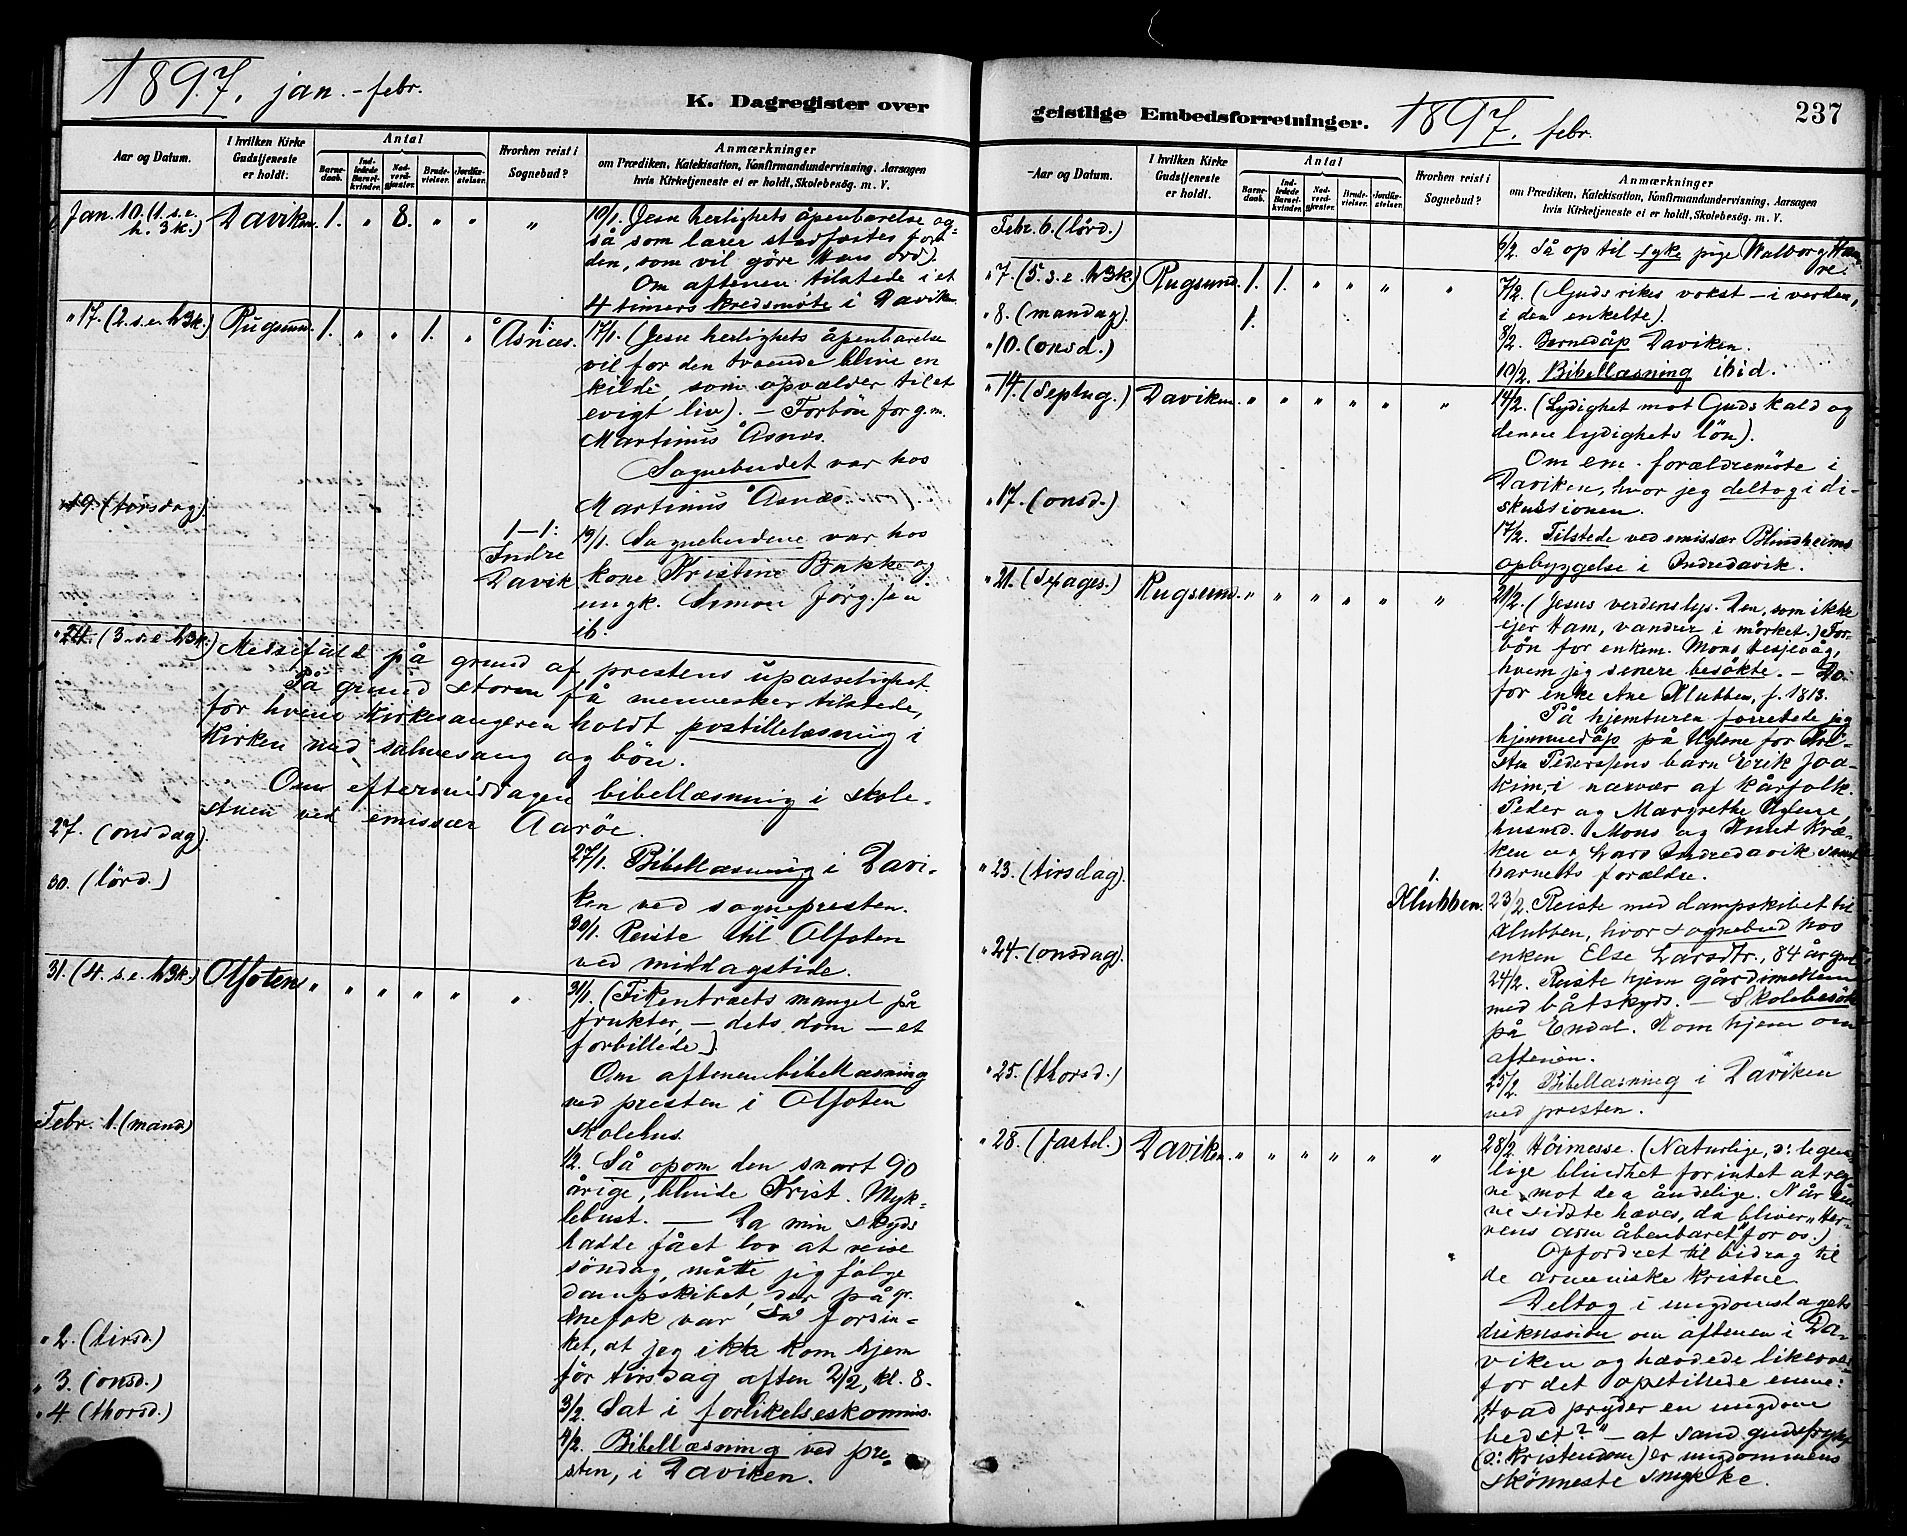 1897. jan.-febr.
K. Dagregister over
Aar og Datum.
I hvilken Kirke Gudstjeneste er holdt.
Antal
Barnedaab.
Indledede Barselkvinder.
Nadverdgjester.
Brudevielser.
Jordfæstelser.
Hvorhen reist i Sognebud?
Anmærkninger
om Prædiken, Katekisation, Konfirmandundervisning, Aarsagen
hvis Kirketjeneste ei er holdt, Skolebesög. m. V.
Jan. 10. (1. s. e. h. 3 k.) Daviken 1. " 8. " " "
10/1. (Jesu herlighets åpenbarelse og-
så som lærer stadfæstes for
den, som vil göre Hans ord).
Om aftenen tilstede i et
4 timers kredsmöte i Davik.
" 17. (2. s. e. h3k.) Rugsund. 1. " " 1. " 1: Åsnæs.
17/1. (Jesu herlighets åpenbarelse
vil for den troende blive en
kilde, som opvælder til et
evigt liv). - Forbön for g.m.
Martinus Åsnæs.
Sognebudet var hos
Martinus Åsnæs.
" 19. (tirsdag). 1-1: Indre Davik
19/1. Sognebudene var hos
kone Kristine Bakke og
ungk. Simon Jörg.sen
ib.
" 24. (3. s. e. h3k.) Messefald på grund af prestens upasselighet.
På grund storm få mennesker tilstede,
for hvem kirkesangeren holdt postillelæsning i
kirken med salmesang og bön.
Om eftermiddagen bibellæsning i skole-
stuen ved emissær Aaröe.
27. (onsdag).
27/1. Bibellæsning i Davi-
ken ved sognepresten.
30. (lörd.)
30/1. Reiste til Alfoten
ved middagstide.
31. (4. s. e. h3k.) Alfoten " " " " " "
31/1. (Fikentræets mangel på
frukter, - dets dom - et
forbillede).
Om aftenen bibellæsning
ved presten i Alfoten
skolehus.
Febr. 1. (mand)
1/2. Så opom den snart 90
årige, blinde Krist. Myk-
lebust. - Da min skyds
hadde fået lov at reise
söndag, måtte jeg fölge
dampskibet, der på gr.
snefok var så forsin-
ket, at jeg ikke kom hjem
" 2. (tirsd.)
för tirsdag aften 2/2, kl. 8.
" 3. (onsd.)
3/2. Sat i forlikelseskommis.
" 4 (thorsd.)
4/2. Bibellæsning ved pre-
sten, i Daviken.
geistlige Embedsforretninger. 1897. febr.
237
Aar og Datum.
I hvilken Kirke Gudstjeneste er holdt.
Antal
Barnedaab.
Indledede Barselkvinder.
Nadverdgjester.
Brudevielser.
Jordfæstelser.
Hvorhen reist i Sognebud?
Anmærkninger
om Prædiken, Katekisation, Konfirmandundervisning, Aarsagen
hvis Kirketjeneste ei er holdt, Skolebesög. m. V.
Febr. 6. (lörd.)
6/2. Så op til syke pige Walborg Ham-
re.
" 7. (5. s. e. h3k.) Rugsund. 1. 1. " " " "
7/2. (Guds rikes vokst - i verden,
i den enkelte).
" 8. (mandag). 1.
8/2. Barnedåp Daviken.
" 10. (onsd.)
10/2. Bibellæsning ibid.
" 14. (Septug.) Daviken " " " " " "
14/2. (Lydighet mot Guds kald og
denne lydighets lön).
Om em. forældremöte i
Daviken, hvor jeg deltog i di-
skussionen.
" 17. (onsd.)
17/2. Tilstede ved emissær Blindheims
opbyggelse i Indredavik.
" 21. (Sexages.) Rugsund. " " " " " "
21/2. (Jesus verdens lys. Den, som ikke
ejer Ham, vandrer i mörket.) For-
bön for enkem. Mons
hvem jeg senere besökte. - Do.
for enke Ane Klubben, f. 1813.
På hjemturen forrettede jeg
hjemmedåp på Uglene for Kri-
sten Pedersens barn Erik Joa-
kim, i nærvær af kårfolk.
Peder og Margrethe Uglene,
husmd. Mons og Knut Kræ-
ken og Lars Indredavik samt
barnets forældre.
" 23. (tirsdag). 1. Klubben.
23/2. Reiste med dampskibet til
Klubben, hvor sognebud hos
enken Else Larsdtr., 84 år gml
" 24. (onsdag).
24/2. Reiste hjem gårdimellem
med båtskyds. - Skolebesök
på Endal. Kom hjem om
aftenen.
" 25. (thorsd.)
25/2. Bibellæsning i Daviken
ved presten.
" 28. (fastel.) Daviken " " " " " "
28/2. Höimesse. (Naturlige, ɔ: legem-
lige blindhet for intet at reg-
ne mot den åndelige. Når den-
ne sidste hæves, da bliver "Her-
rens arm åbenbaret" for os.)
Opfordret til bidrag til
de armeniske kristne
Deltog i ungdomslagets
diskussion om aftenen i Da-
viken og hævdede likeover-
for det opstillede emne:
"Hvad pryder en ungdom
bedst?" - at sand gudsfrykt
(ɔ: kristendom) er ungdommens
skönneste smykke.